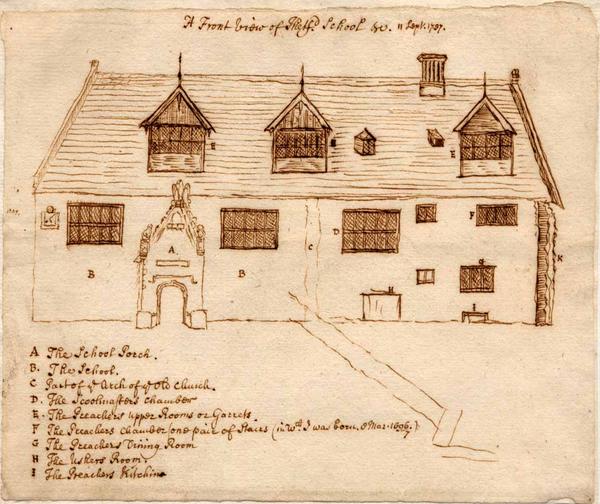 A Front View of Thetfd. School &c. 11 Sept. 1737.
E
E
E
A
B
B
C
D
F
G
H
I
K
A The School Porch.
B. The School.
C Part of ye Arch of ye Old Church.
D. The Scoolmasters chamber
E. The Preachers upper Rooms or Garrets.
F The Preachers chamber one pair of Stairs (in wch. I was born, 8 Mar. 1696/7.)
G The Preachers Dining Room
H The Ushers Room.
I The Preachers Kitchine